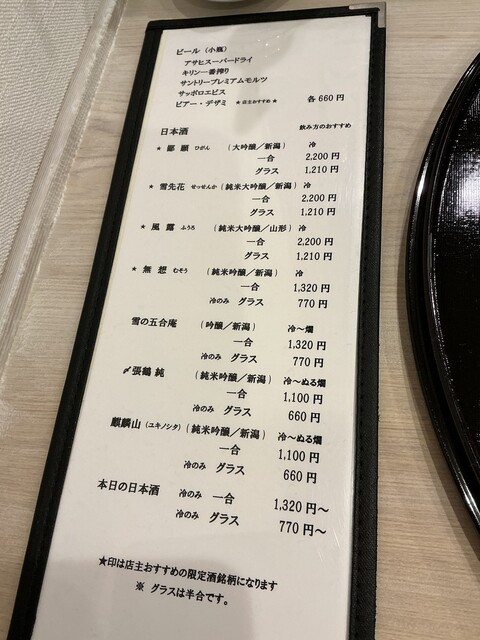 ビール（小瓶）
アサヒスーパードライ
キリン一番搾り
サントリープレミアムモルツ
サッポロエビス
ビアー・デザミ ★店主おすすめ★ 各660円
日本酒 飲み方のおすすめ
★ 鄙願 ひがん （大吟醸／新潟） 冷
一合 2,200円
グラス 1,210円
★ 雪先花 せっせんか （純米大吟醸／新潟） 冷
一合 2,200円
グラス 1,210円
★ 風露 ふうろ （純米大吟醸／山形） 冷
一合 2,200円
グラス 1,210円
★ 無想 むそう （純米吟醸／新潟） 冷
一合 1,320円
冷のみ グラス 770円
雪の五合庵 （吟醸／新潟） 冷～燗
一合 1,320円
冷のみ グラス 770円
〆張鶴 純 （純米吟醸／新潟） 冷～ぬる燗
一合 1,100円
冷のみ グラス 660円
麒麟山（ユキノシタ）（純米吟醸／新潟） 冷～ぬる燗
一合 1,100円
冷のみ グラス 660円
本日の日本酒 冷のみ 一合 1,320円～
冷のみ グラス 770円～
★印は店主おすすめの限定酒銘柄になります
※ グラスは半合です。